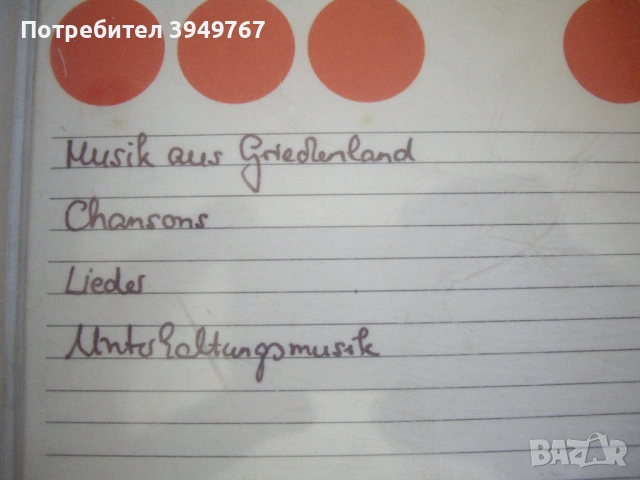 Потребител 3949767
Musik aus Griechenland
Chansons
Lieder
Unterhaltungsmusik
BAZAR